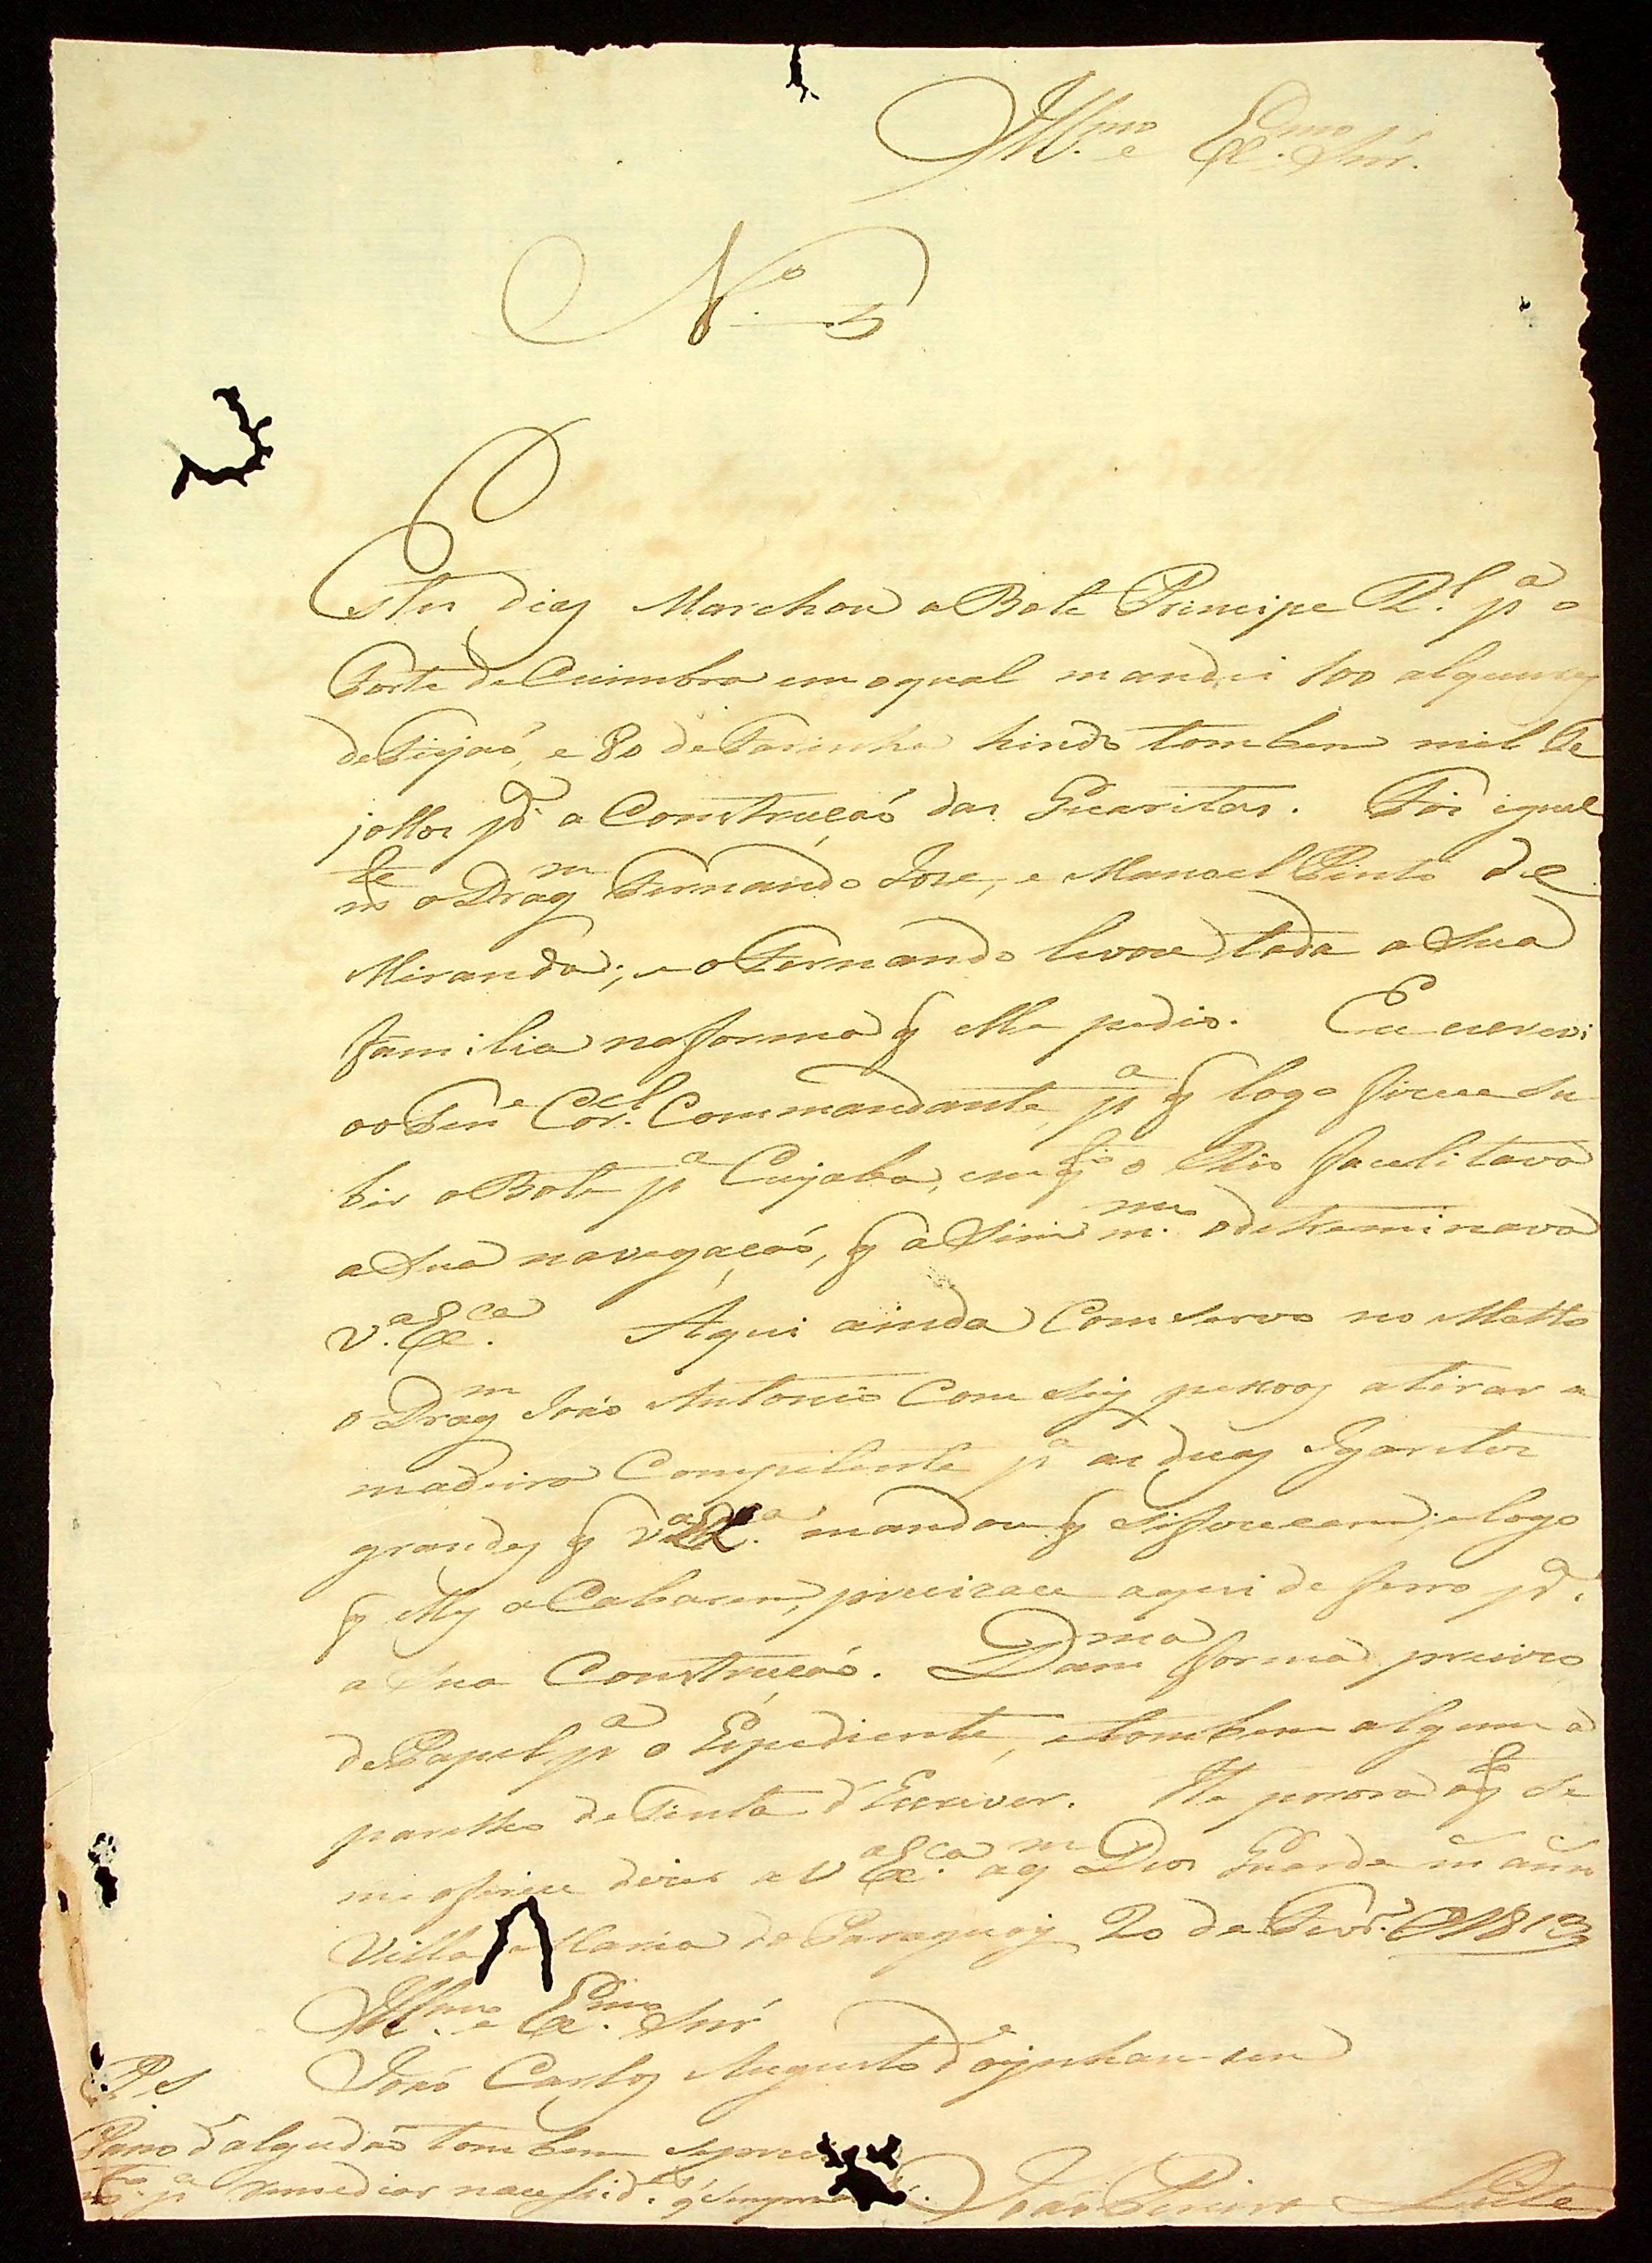 Ill.mo e Ex.mo Snr.
N.o 5
Estes dias Marchou o Bote Principe R.l p.a o
Forte de Cuimbra em o qual mandei 100 alqueires
de Feijaó, e 80 de Farinha hindo tombem mil Te
jollos p.a a Construçaó das Guaritas. Foi igual
m.te o Drag.m Fernando Joze, e Manoel Pinto de
Miranda; e o Fernando levou toda a Sua
familia na forma q elle pedio. Eu escrevi
ao Ten.e Cor.el Commandante, p.a q logo fizece Su
bir o Bote p.a Cuyaba, em q.to o Rio facelitava
a Sua navegaçaó, q a Sim m.mo o detreminava
V.a Ex.ca Aqui ainda Comservo no Matto
o Drag.m Joaó Antonio Com Seis pessoas a tirar a
madeira Competente p.a as duas Ygarites
grandes q V.a Ex.ca mandou q Sifizecem; e logo
q elles a Cabarem, precizace aqui de ferro p.a
a Sua Construçaó. Da m.ma forma precizo
de Papel p.a o Expediente, e tombem algum a
parelho de Tinta d'Escrever. He por ora o q.to Se
me oferece dizer a V.a Ex.ca a q.m Deos Guarde m.s an.s
Villa Maria do Paraguay 20 de Fevr.o de 1813
Ill.mo e Ex.mo Snr
Joaó Carlos Augusto d'Oeynhausen
P.S.
Pano d'algudaó tombem Se
m.to p.a remediar nacessid.es q
Joaó Pereira Leite